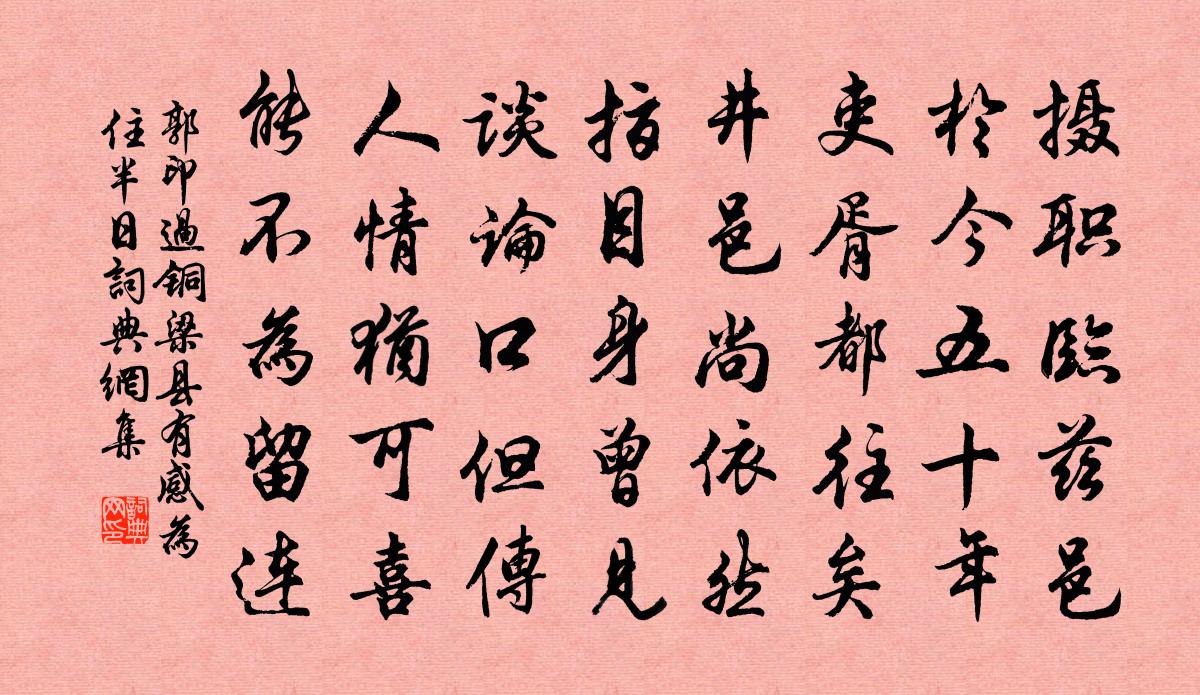 摄职临兹邑
於今五十年
吏胥都往矣
井邑尚依然
指目身曾见
谈論口但傳
人情犹可喜
能不為留连
郭印過铜梁县有感為
住半日詞典網集
詞典
网印